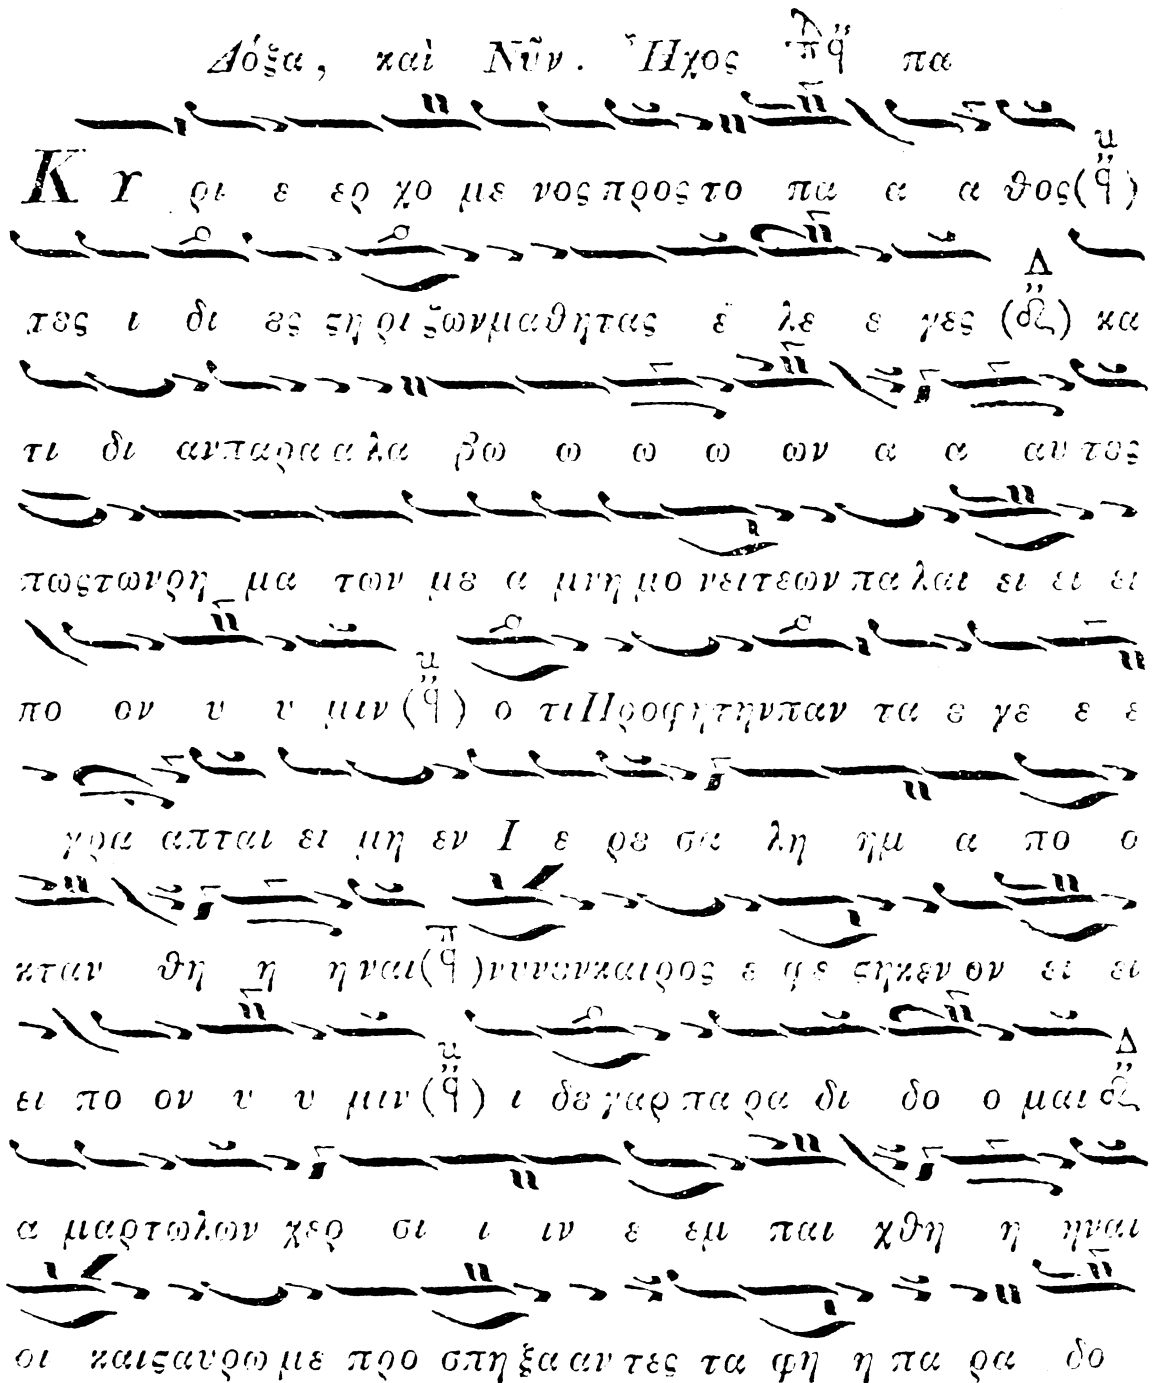 Δόξα, καὶ Νῦν. Ἦχος πα
Κυ ρι ε ερ χο με νος προς το πα α α θος
τȣς ι δι ȣς ϛη ρι ζων μα θη τας ε λε ε γες κα
τι δι αν πα ρα α λα βω ω ω ω ων α α αυ τȣς
πως των ρη μα των μȣ α μνη μο νει τε ων πα λαι ει ει ει
πο ον υ υ μιν ο τι Προ φη την παν τα ȣ γε ε ε
γρα απται ει μη εν Ι ε ρȣ σα λη ημ α πο ο
κταν θη η η ναι νυν ουν και ρος ε φε ϛη κεν ον ει ει
ει πο ον υ υ μιν ι δȣ γαρ πα ρα δι δο ο μαι
α μαρ τω λων χερ σι ι ιν ε εμ παι χθη η η ναι
οι και ϛαυ ρω με προ σπη ξα αν τες τα φη η πα ρα δο